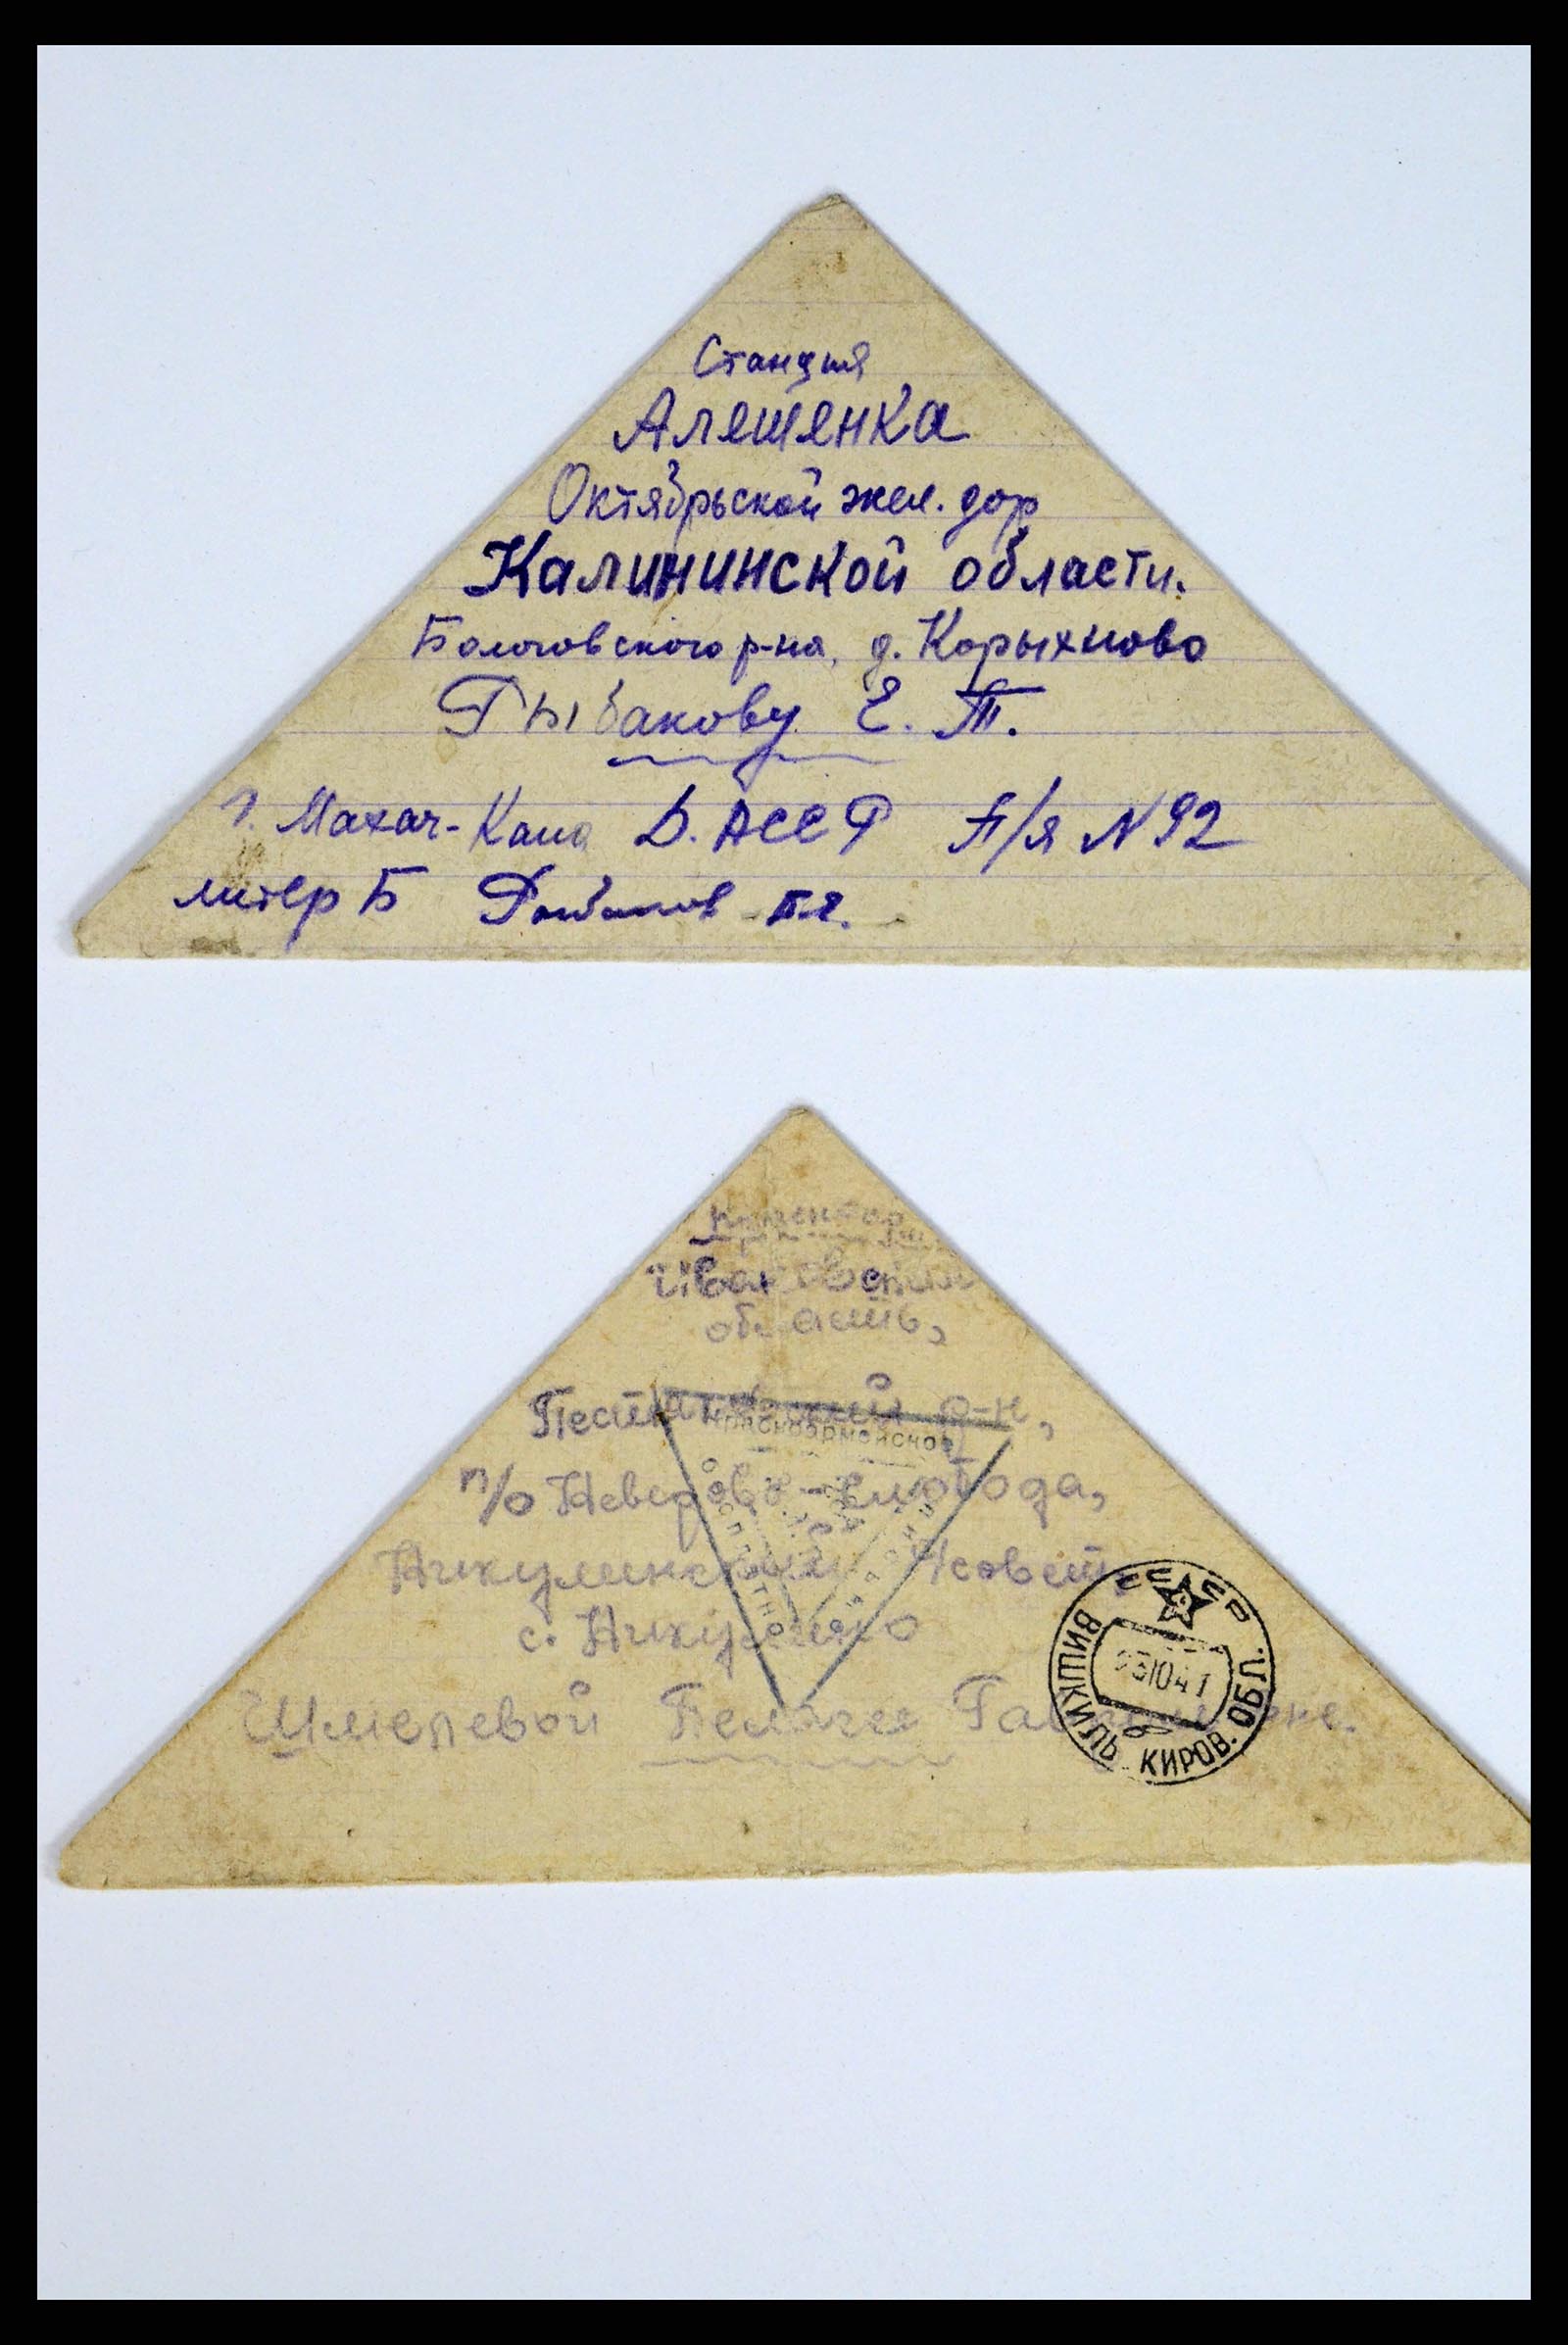 Станция
Алешенка
Октябрьской жел. дор
Калининской области.
Бологовского р-на, д. Корыхново
Рыбакову Е. Т.
г. Махач-Кала Д. АССР П/я N 92
литер Б Рыбаков
Ивановская
область,
Пестяковский р-н,
п/о Неверово-слобода,
Никулинский с/совет,
с. Никулино
Шмелевой Пелагее
Красноармейское
бесплатно
СССР
ВИШКИЛЬ КИРОВ. ОБЛ.